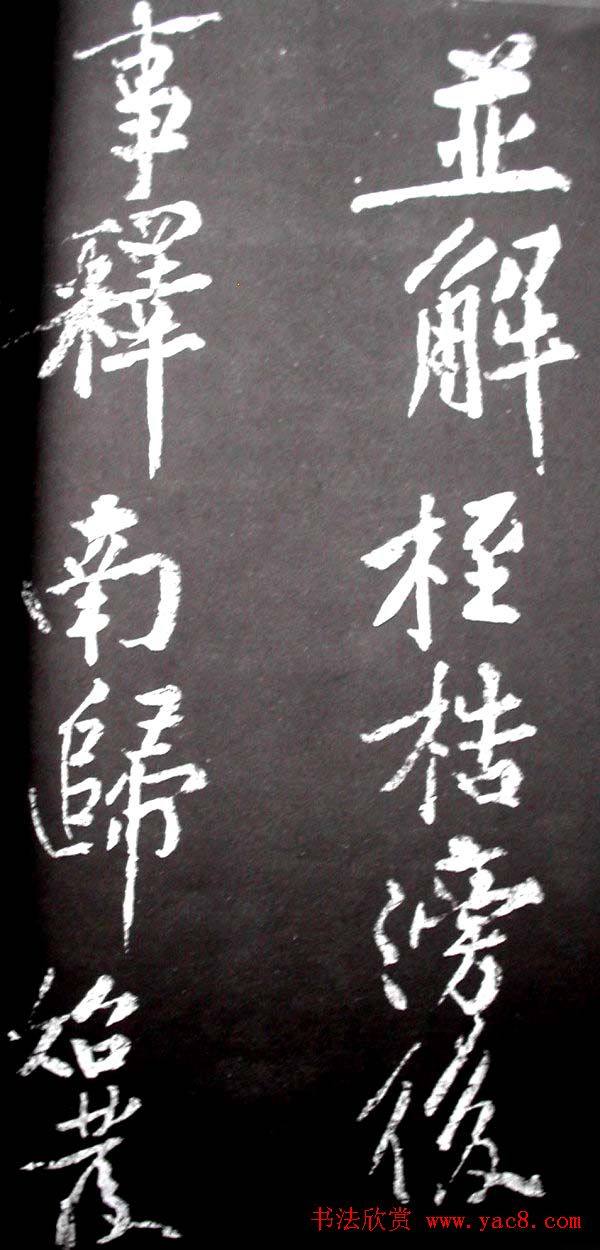 並解桎梏滂後
事釋南歸始發
书法欣赏 www.yac8.com